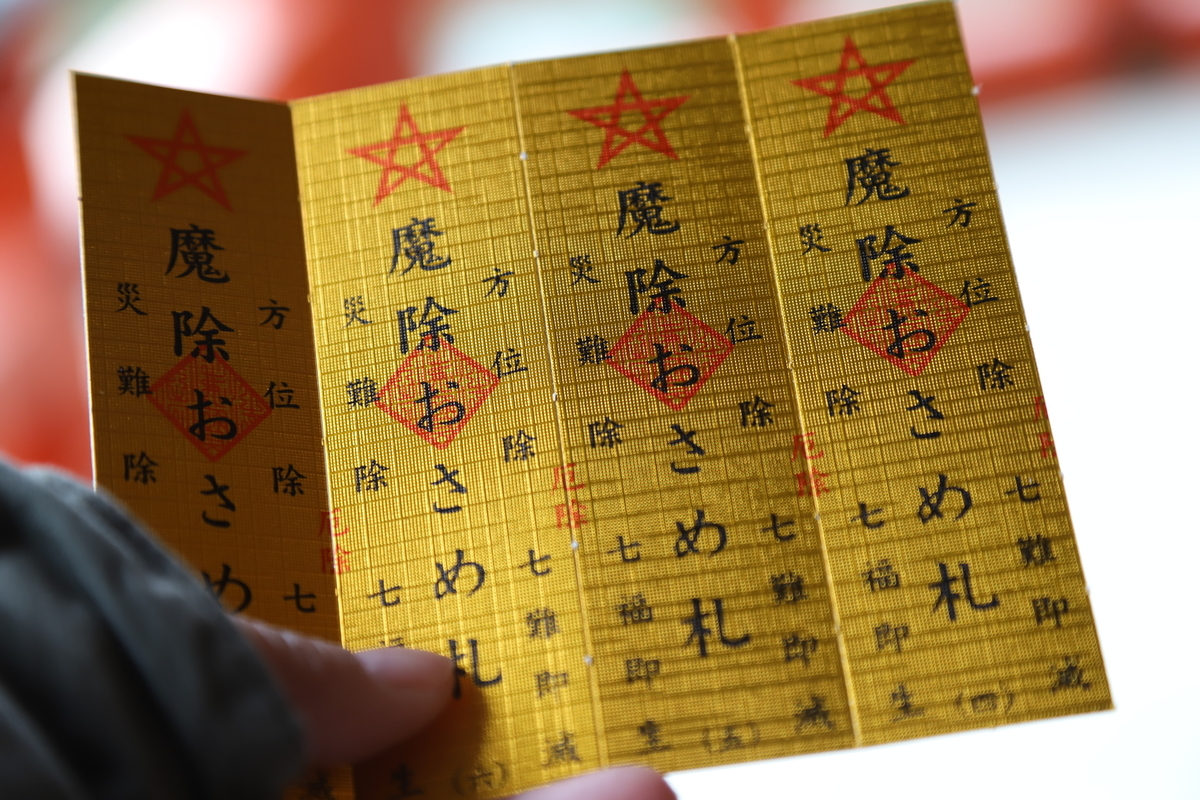 方位除
七難即滅
魔除おさめ札
(四)
災難除
七福即生
厄除
方位除
七難即滅
魔除おさめ札
(五)
災難除
七福即生
厄除
方位除
七難即滅
魔除おさめ札
(六)
災難除
七
生
厄除
方位除
七
魔除おさめ
災難除